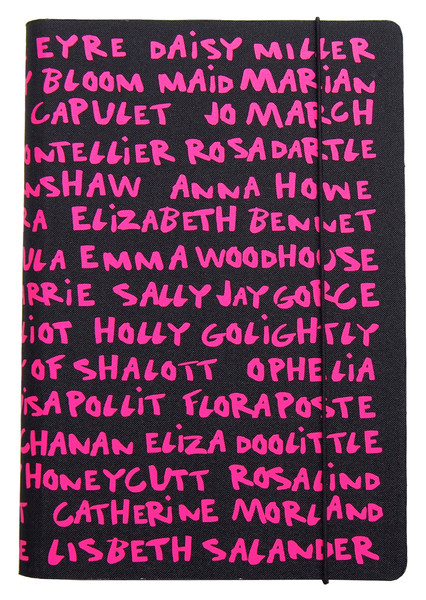 EYRE DAISY MILLER
Y BLOOM MAID MARIAN
CAPULET JO MARCH
ONTELLIER ROSA DARTLE
NSHAW ANNA HOWE
RA ELIZABETH BENNET
ULA EMMA WOODHOUSE
RRIE SALLY JAY GORCE
LIOT HOLLY GOLIGHTLY
OF SHALOTT OPHELIA
ISA POLLIT FLORA POSTE
CHANAN ELIZA DOOLITTLE
HONEYCUTT ROSALIND
T CATHERINE MORLAND
E LISBETH SALANDER